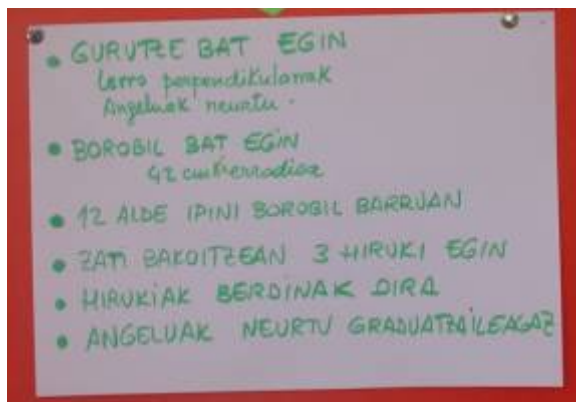 • GURUTZE BAT EGIN
Lerro perpendikularrak
Angeluak neurtu.
• BOROBIL BAT EGIN
42 cm-ko erradioa
• 12 ALDE IPINI BOROBIL BARRUAN
• ZATI BAKOITZEAN 3 HIRUKI EGIN
• HIRUKIAK BERDINAK DIRA
• ANGELUAK NEURTU GRADUATZAILEAGAZ